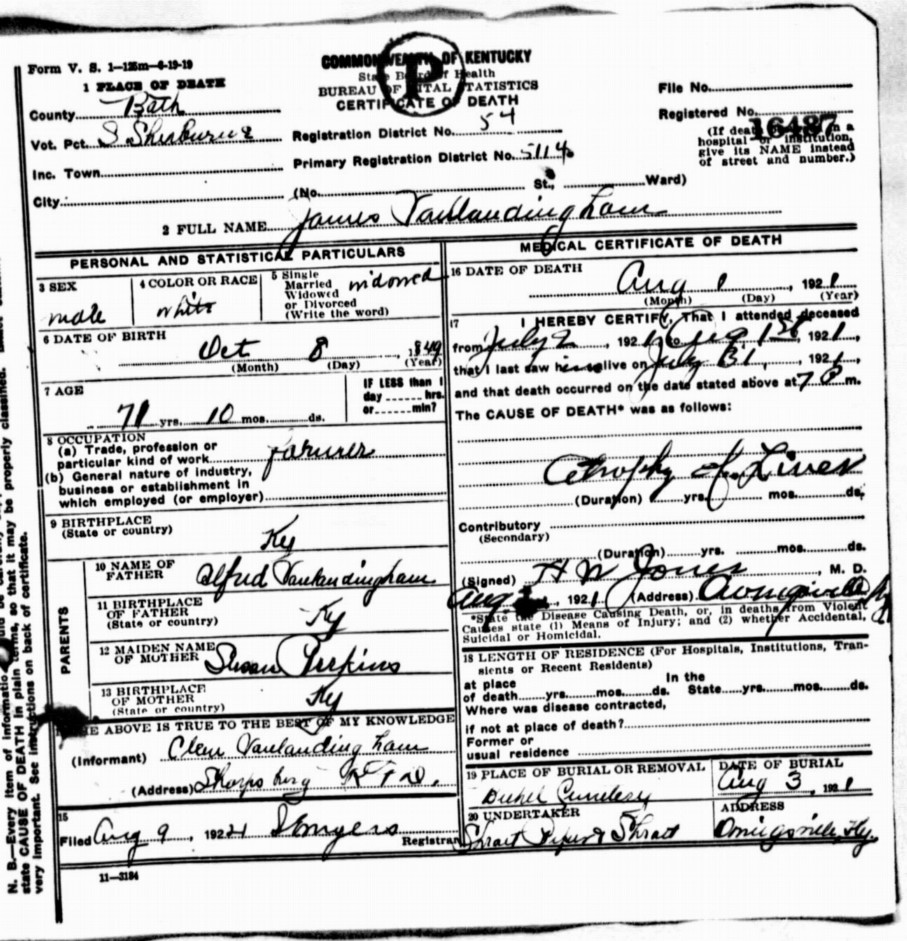 Form V. S. 1—125m—6-19-19
COMMONWEALTH OF KENTUCKY
State Board of Health
BUREAU OF VITAL STATISTICS
CERTIFICATE OF DEATH
P
1 PLACE OF DEATH
County Bath
Vot. Pct. S Sherburne
Inc. Town
City
Registration District No. 54
Primary Registration District No. 5114
(No. St., Ward)
File No.
Registered No. 16487
(If death in a
hospital or institution,
give its NAME instead
of street and number.)
2 FULL NAME James Vanlandingham
PERSONAL AND STATISTICAL PARTICULARS
3 SEX
male
4 COLOR OR RACE
white
5 Single
Married
Widowed
or Divorced
(Write the word)
widowed
6 DATE OF BIRTH
Oct 8, 1849
(Month) (Day) (Year)
7 AGE
71 yrs. 10 mos. ds.
IF LESS than 1
day hrs.
or min?
8 OCCUPATION
(a) Trade, profession or
particular kind of work farmer
(b) General nature of industry,
business or establishment in
which employed (or employer)
9 BIRTHPLACE
(State or country)
Ky
PARENTS
10 NAME OF
FATHER Alfred Vanlandingham
11 BIRTHPLACE
OF FATHER
(State or country) Ky
12 MAIDEN NAME
OF MOTHER Susan Perkins
13 BIRTHPLACE
OF MOTHER
(State or country) Ky
THE ABOVE IS TRUE TO THE BEST OF MY KNOWLEDGE
(Informant) Clem Vanlandingham
(Address) Sharpsburg
15
Filed Aug 9, 1921 Registrar
11—3184
MEDICAL CERTIFICATE OF DEATH
16 DATE OF DEATH
Aug 1, 1921
(Month) (Day) (Year)
17 I HEREBY CERTIFY, That I attended deceased
from July 2, 1921, to Aug 1st, 1921,
that I last saw him alive on July 31, 1921,
and that death occurred on the date stated above at 7 m.
The CAUSE OF DEATH* was as follows:
Atrophy of Liver
(Duration) yrs. mos. ds.
Contributory
(Secondary)
(Duration) yrs. mos. ds.
(Signed) H W Jones, M. D.
Aug, 1921 (Address)
*State the Disease Causing Death, or, in deaths from Violent
Causes state (1) Means of Injury; and (2) whether Accidental,
Suicidal or Homicidal.
18 LENGTH OF RESIDENCE (For Hospitals, Institutions, Tran-
sients or Recent Residents)
at place In the
of death yrs. mos. ds. State yrs. mos. ds.
Where was disease contracted,
if not at place of death?
Former or
usual residence
19 PLACE OF BURIAL OR REMOVAL
DATE OF BURIAL
Aug 3, 1921
20 UNDERTAKER
ADDRESS
Owingsville, Ky.
N. B.—Every item of information
state CAUSE OF DEATH in plain terms, so that it may be properly classified.
very important. See instructions on back of certificate.